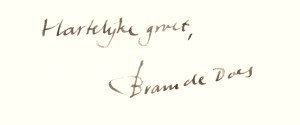 Hartelijke groet,
Bram de Does